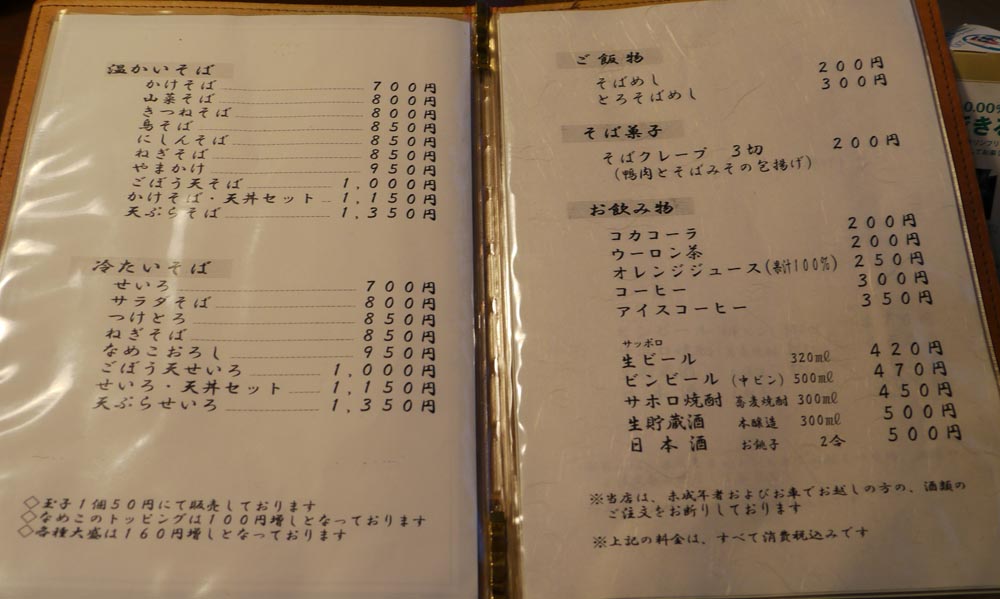 温かいそば
かけそば 700円
山菜そば 800円
きつねそば 800円
鳥そば 850円
にしんそば 850円
ねぎそば 850円
やまかけ 950円
ごぼう天そば 1,000円
かけそば・天丼セット 1,150円
天ぷらそば 1,350円
冷たいそば
せいろ 700円
サラダそば 800円
つけとろ 850円
ねぎそば 850円
なめこおろし 950円
ごぼう天せいろ 1,000円
せいろ・天丼セット 1,150円
天ぷらせいろ 1,350円
◇玉子1個50円にて販売しております
◇なめこのトッピングは100円増しとなっております
◇各種大盛は160円増しとなっております
ご飯物
そばめし 200円
とろそばめし 300円
そば菓子
そばクレープ 3切 200円
(鴨肉とそばみその包揚げ)
お飲み物
コカコーラ 200円
ウーロン茶 200円
オレンジジュース(果汁100%) 250円
コーヒー 300円
アイスコーヒー 350円
サッポロ
生ビール 320㎖ 420円
ビンビール (中ビン) 500㎖ 470円
サホロ焼酎 蕎麦焼酎 300㎖ 450円
生貯蔵酒 本醸造 300㎖ 500円
日本酒 お銚子 2合 500円
※当店は、未成年者およびお車でお越しの方の、酒類の
ご注文をお断りしております
※上記の料金は、すべて消費税込みです